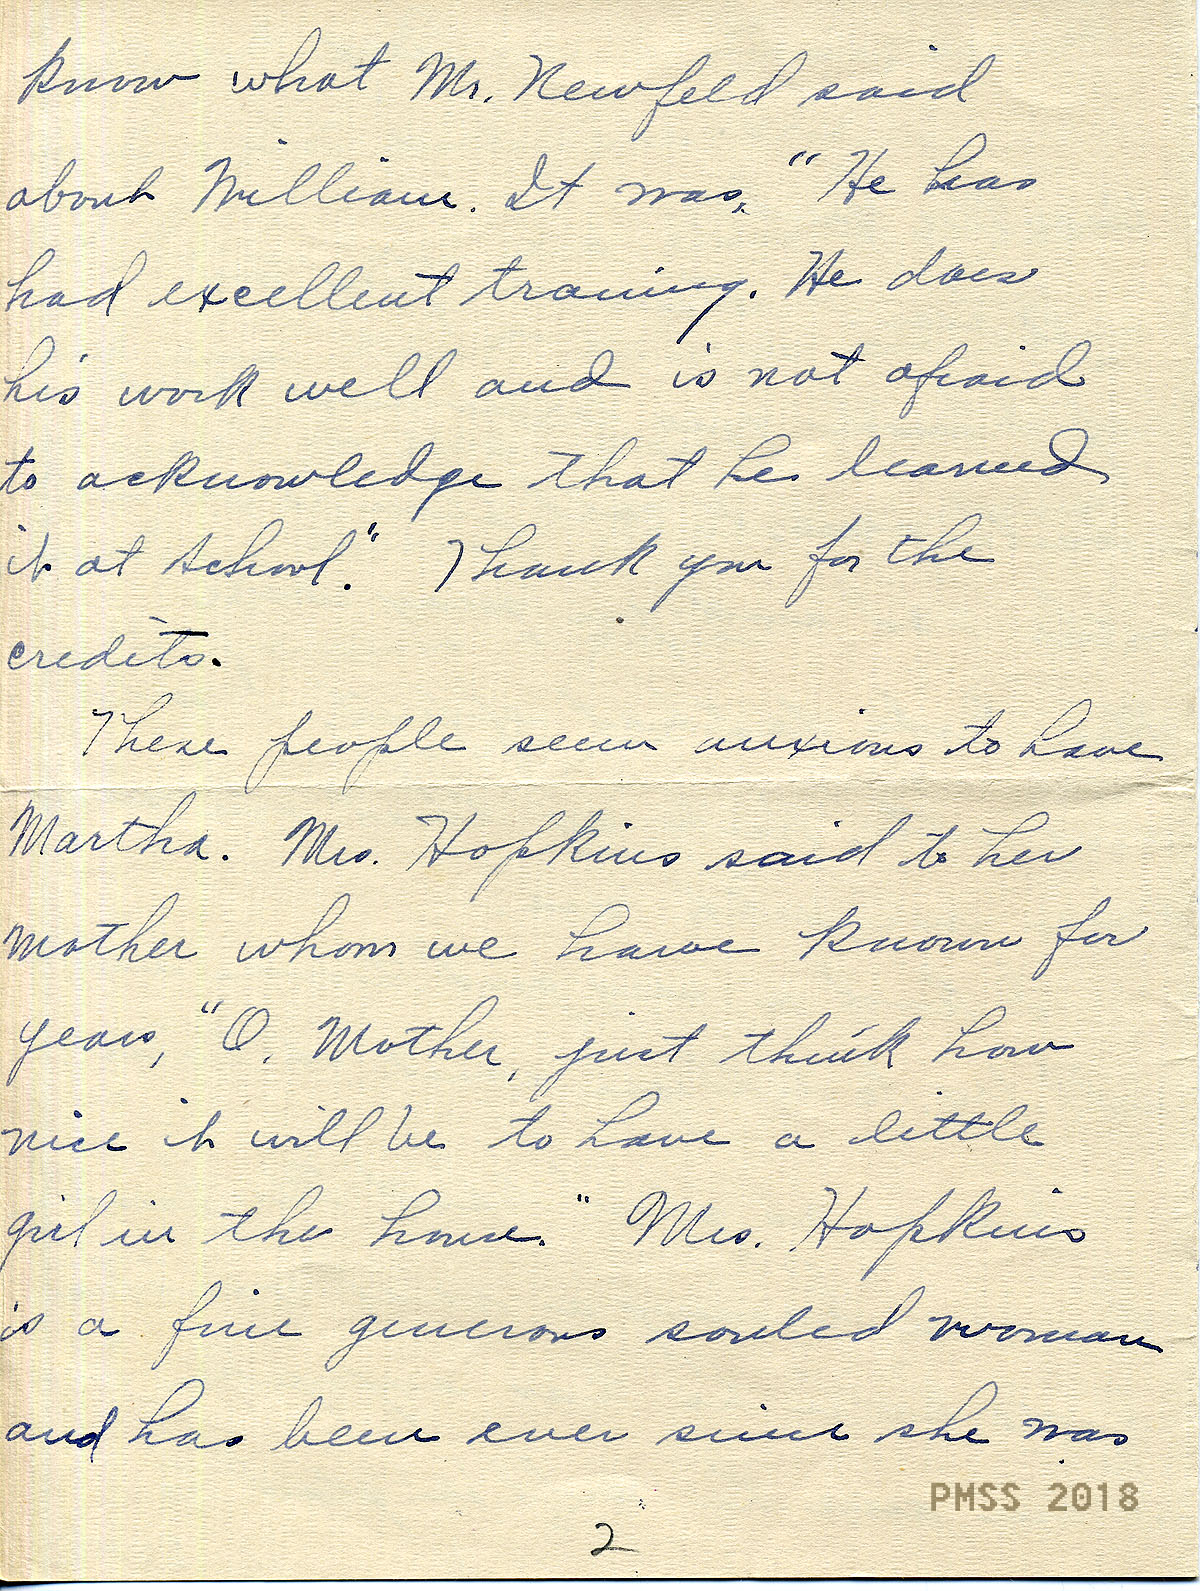 know what Mr. Newfeld said
about William. It was, "He has
had excellent training. He does
his work well and is not afraid
to acknowledge that he learned
it at school." Thank you for the
credits.
These people seem anxious to have
Martha. Mrs. Hopkins said to her
mother whom we have known for
years, "O, Mother, just think how
nice it will be to have a little
girl in the house." Mrs. Hopkins
is a fine generous souled woman
and has been ever since she was
PMSS 2018
2